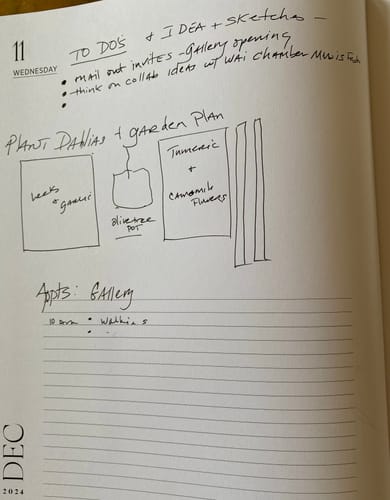 11
WEDNESDAY
TO DO'S & IDEA + SKetches –
• mail out invites – Gallery opening
• think on collab ideas w/ WAI Chamber Music Fest
•
PLANT DAHLIAS + gARDEN PLAN
Leeks
+
garlic
olive tree
POT
Tumeric
+
Camomile
Flowers
Appts: GAllery
10 am • Walkins
•
DEC
2024